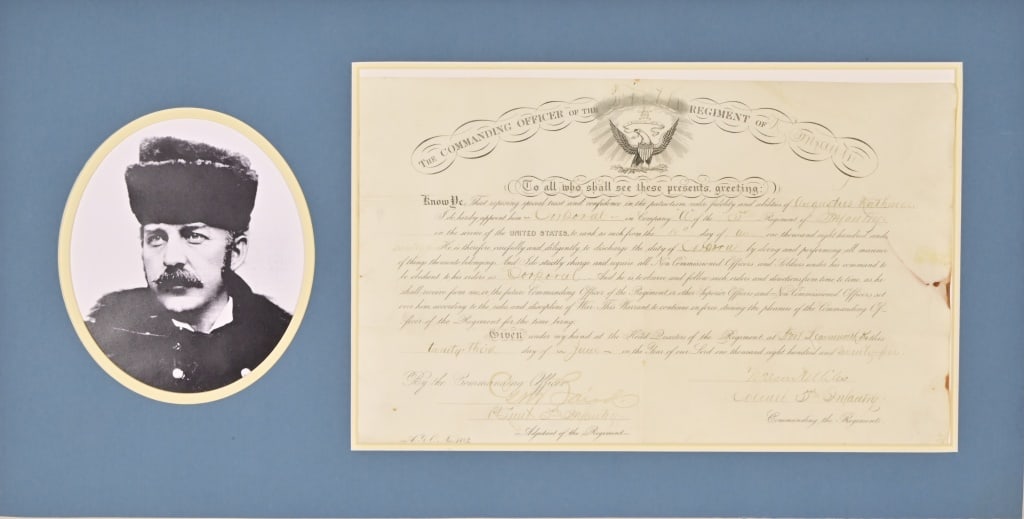 THE COMMANDING OFFICER OF THE REGIMENT OF Infantry
To all who shall see these presents, greeting:
Know Ye, That reposing special trust and confidence in the patriotism, valor, fidelity and abilities of
I do hereby appoint him Corporal in Company of the 5th Regiment of Infantry
in the service of the UNITED STATES, to rank as such from the day of one thousand eight hundred and
He is therefore carefully and diligently to discharge the duty of Corporal by doing and performing all manner
of things thereunto belonging. And I do strictly charge and require all Non-Commissioned Officers and Soldiers under his command to
be obedient to his orders as Corporal. And he is to observe and follow such orders and directions from time to time, as he
shall receive from me, or the future Commanding Officer of the Regiment, or other Superior Officers and Non-Commissioned Officers set
over him, according to the rules and discipline of War. This Warrant to continue in force during the pleasure of the Commanding Of-
ficer of the Regiment for the time being.
Given under my hand at the Head Quarters of the Regiment at Fort Leavenworth Kansas this
twenty third day of June in the Year of our Lord one thousand eight hundred and seventy five
By the Commanding Officer
G W Baird
1st Lieut 5th Infantry
Adjutant of the Regiment
Nelson A Miles
Colonel 5th Infantry
Commanding the Regiment